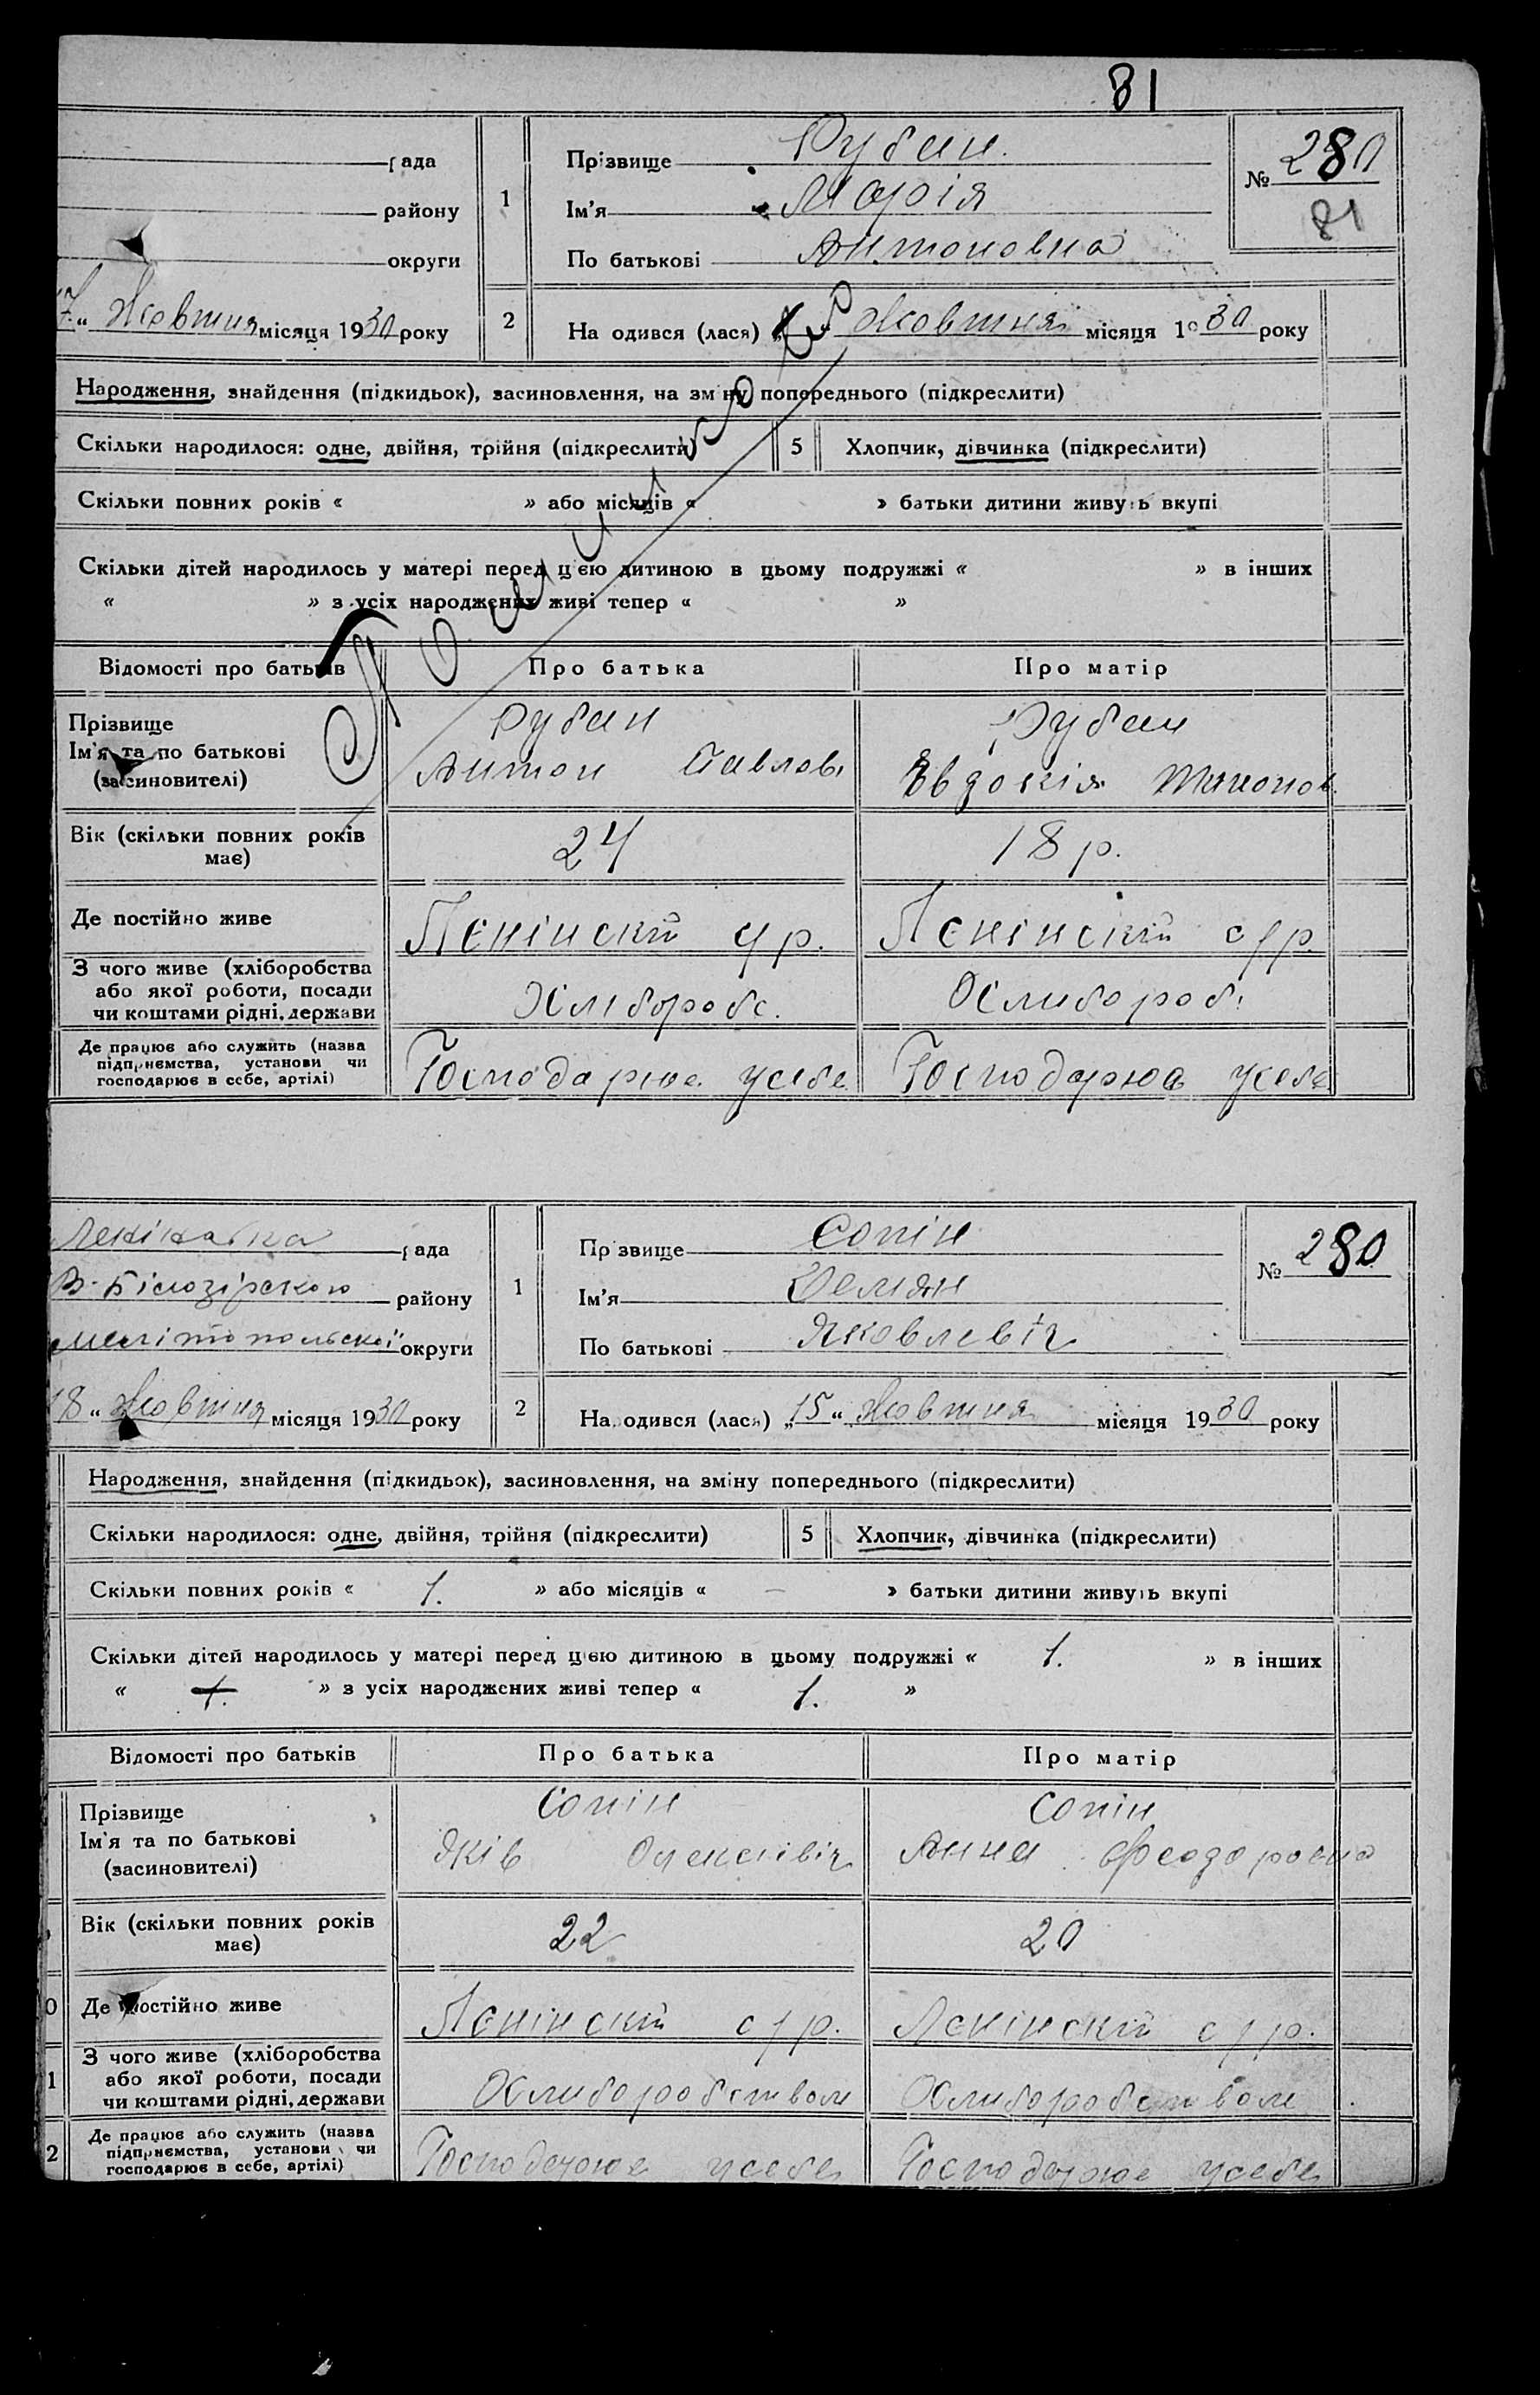 81
рада
району
округи
7 „ Жовтня місяця 1930 року
1
Прізвище Рубан.
Ім'я Марія
По батькові Антоновна
№ 280
81
2
На одився (лася) Жовтня місяця 1930 року
Народження, знайдення (підкидьок), засиновлення, на зміну попереднього (підкреслити)
Скільки народилося: одне, двійня, трійня (підкреслити)
5
Хлопчик, дівчинка (підкреслити)
Скільки повних років « » або місяців « » батьки дитини живуть вкупі
Скільки дітей народилось у матері перед цією дитиною в цьому подружжі « » в інших
« » з усіх народжених живі тепер « »
Відомості про батьків
Про батька
Про матір
Прізвище
Ім'я та по батькові
(засиновителі)
Рубан
Антон Павлов.
Рубан
Евдокія
Вік (скільки повних років має)
24
18 р.
Де постійно живе
Ленінский с/р.
Ленінский с/р.
З чого живе (хліборобства
або якої роботи, посади
чи коштами рідні, держави
Хліборобс.
Хлибороб.
Де працює або служить (назва
підприємства, установи чи
господарює в себе, артілі)
Господарює усебе
Господарює усебе
рада
В-Білозірского району
Мелітопольскої округи
18 „ Жовтня місяця 1930 року
1
Прізвище Сопін
Ім'я Демян
По батькові Яковлевіч
№ 280
2
Народився (лася) „15“ Жовтня місяця 1930 року
Народження, знайдення (підкидьок), засиновлення, на зміну попереднього (підкреслити)
Скільки народилося: одне, двійня, трійня (підкреслити)
5
Хлопчик, дівчинка (підкреслити)
Скільки повних років « 1. » або місяців « — » батьки дитини живуть вкупі
Скільки дітей народилось у матері перед цією дитиною в цьому подружжі « 1. » в інших
« 1. » з усіх народжених живі тепер « 1. »
Відомості про батьків
Про батька
Про матір
Прізвище
Ім'я та по батькові
(засиновителі)
Сопін
Яків Олексіівіч
Сопін
Анна Феодоровна
Вік (скільки повних років має)
22
20
0
Де постійно живе
Ленінский с/р.
Ленінский с/р.
1
З чого живе (хліборобства
або якої роботи, посади
чи коштами рідні, держави
Хлиборобством
Хлиборобством
2
Де працює або служить (назва
підприємства, установи чи
господарює в себе, артілі)
Господарює усебе
Господарює усебе